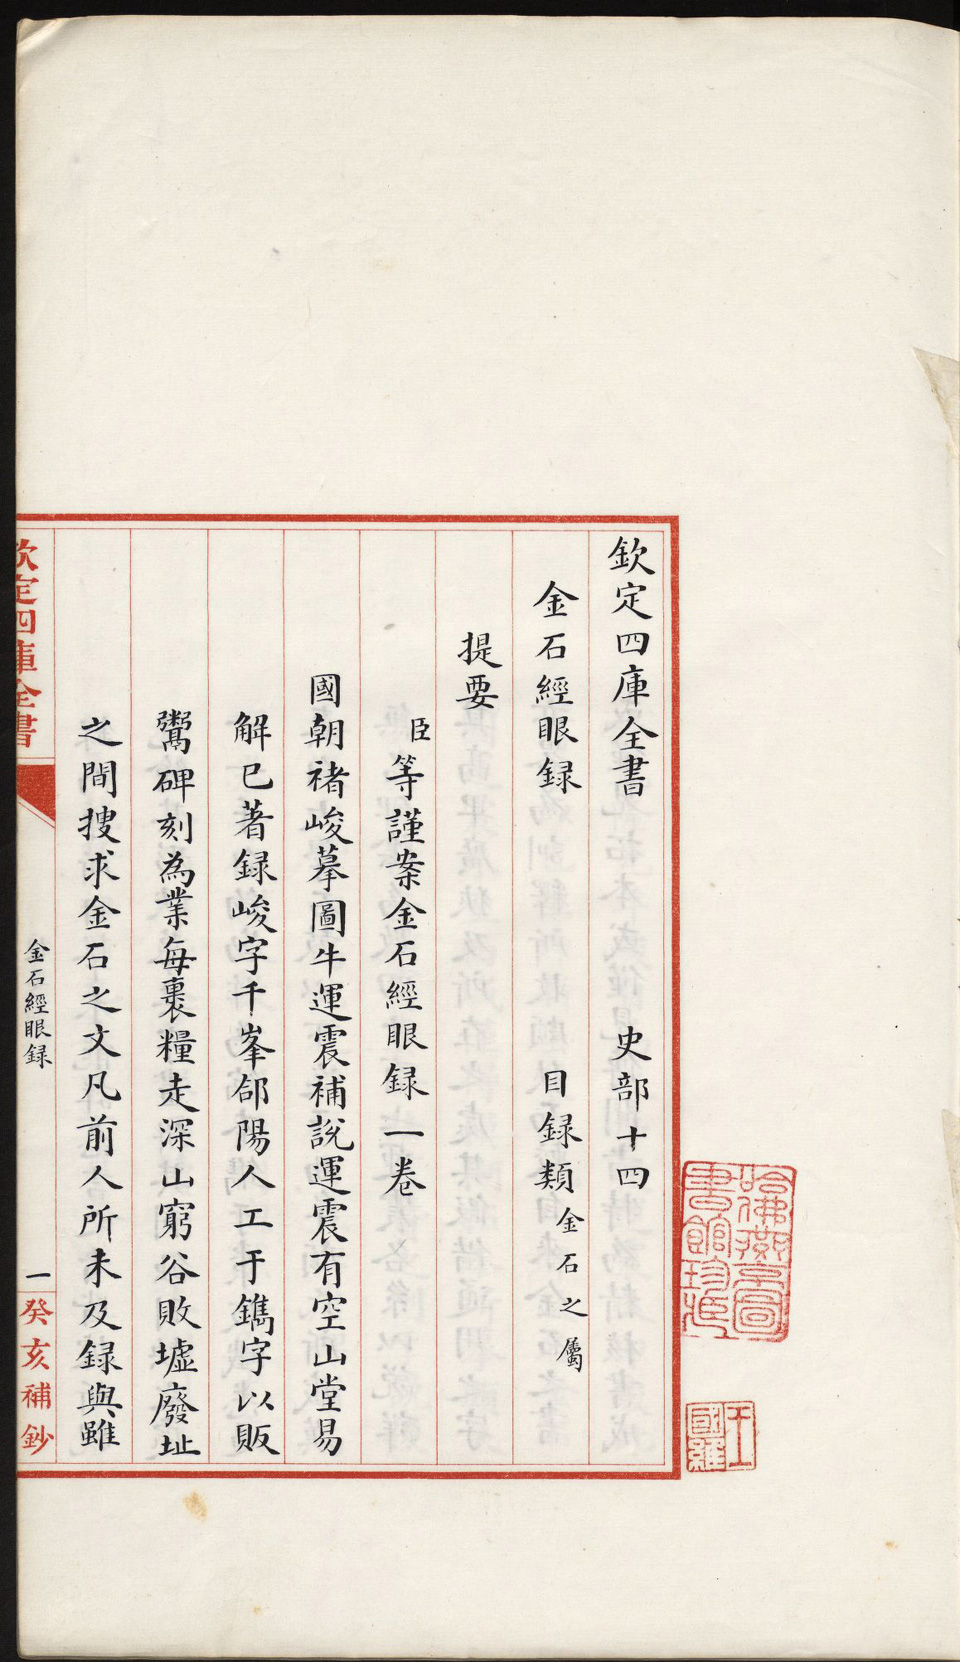 欽定四庫全書　史部十四
金石經眼録　目録類金石之屬
提要
臣等謹案金石經眼録一卷
國朝褚峻摹圖牛運震補說運震有空山堂易
解已著録峻字千峯郃陽人工于鐫字以販
鬻碑刻為業每裹糧走深山窮谷敗墟廢址
之間搜求金石之文凡前人所未及録與雖
欽定四庫全書
金石經眼録
一
癸亥補鈔
哈佛燕京圖
書館珍藏
王
國維